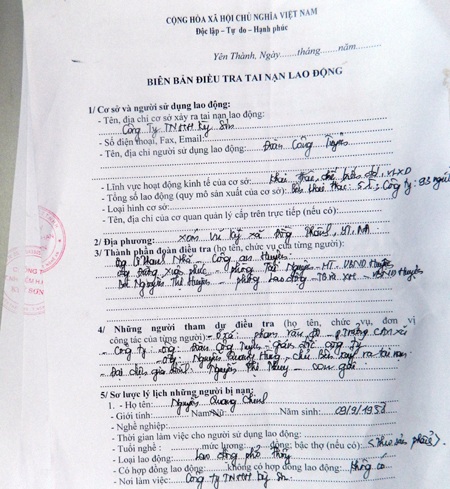 CỘNG HÒA XÃ HỘI CHỦ NGHĨA VIỆT NAM
Độc lập – Tự do – Hạnh phúc
Yên Thành, Ngày.......tháng.......năm..........
BIÊN BẢN ĐIỀU TRA TAI NẠN LAO ĐỘNG
1/ Cơ sở và người sử dụng lao động:
- Tên, địa chỉ cơ sở xảy ra tai nạn lao động:
Công Ty TNHH Kỳ Sơn
- Số điện thoại, Fax, Email:
- Tên, địa chỉ người sử dụng lao động: Đoàn Công Tuyển
- Lĩnh vực hoạt động kinh tế của cơ sở: Khai thác, chế biến đá, VLXD
- Tổng số lao động (quy mô sản xuất của cơ sở): khai thác: Công ty: 93 người
- Loại hình cơ sở:
- Tên, địa chỉ của cơ quan quản lý cấp trên trực tiếp (nếu có):
2/ Địa phương: xóm Vũ Kỳ xã Đồng Thành, YT, NA
3/ Thành phần đoàn điều tra (họ tên, chức vụ của từng người):
Ông Nhã - Công an Huyện
Ông Đặng Xuân Phúc - phòng Tài Nguyên - MT - UBND Huyện
Bà Nguyễn Thị Huyền - phòng Lao động TB và XH - UBND Huyện
4/ Những người tham dự điều tra (họ tên, chức vụ, đơn vị
công tác của từng người): Phạm Văn - P. trưởng CAN xã
- Công ty ông: Đoàn Công Tuyển - giám đốc công ty
Ông Nguyễn Quang Hùng - xảy ra tai nạn
- Đại diện gia đình: Nguyễn Thị - con gái
5/ Sơ lược lý lịch những người bị nạn:
1. - Họ tên: Nguyễn Quang Chính
- Giới tính: Nam/Nữ Năm sinh: 09/9/1958
- Nghề nghiệp:
- Thời gian làm việc cho người sử dụng lao động:
- Tuổi nghề : mức lương: đồng; bậc thợ (nếu có): (Theo sản phẩm)
- Loại lao động: Lao động phổ thông
- Có hợp đồng lao động: không có hợp đồng lao động: Không có
- Nơi làm việc: Công ty TNHH Kỳ Sơn